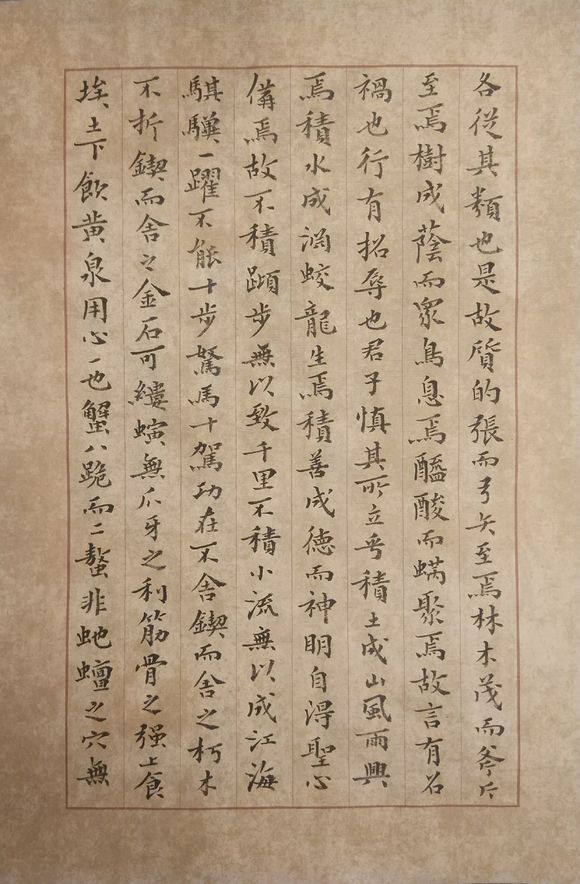 各從其類也是故質的張而弓矢至焉林木茂而斧斤
至焉樹成蔭而眾鳥息焉醯酸而螨聚焉故言有召
禍也行有招辱也君子慎其所立乎積土成山風雨興
焉積水成淵蛟龍生焉積善成德而神明自得聖心
備焉故不積蹞步無以致千里不積小流無以成江海
騏驥一躍不能十步駑馬十駕功在不舍鍥而舍之朽木
不折鍥而舍之金石可縷螾無爪牙之利筋骨之强上食
埃土下飲黃泉用心一也蟹八跪而二螯非虵蟺之穴無